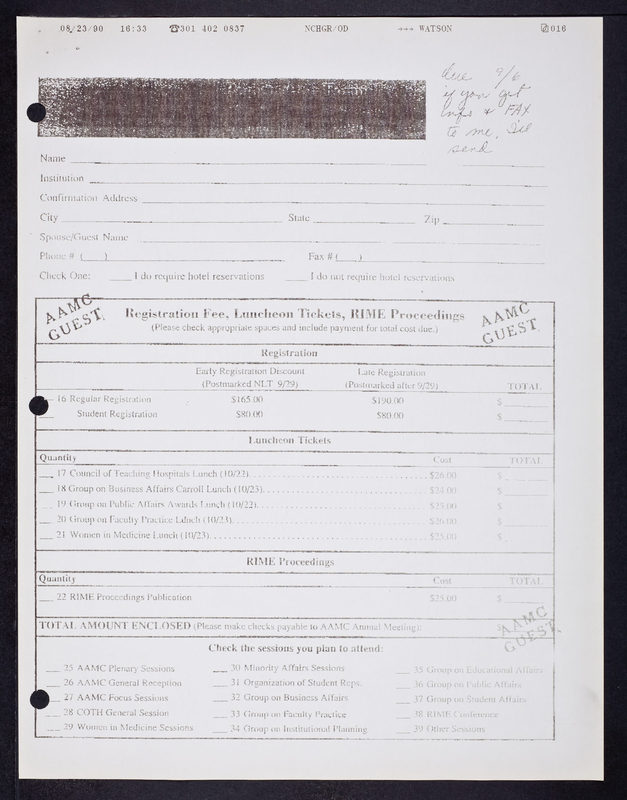 08/23/90 16:33 ☎301 402 0837 NCHGR/OD →→→ WATSON 016
due 9/6
if you get
info & FAX
to me, I'll
send
Name
Institution
Confirmation Address
City State Zip
Spouse/Guest Name
Phone # ( ) Fax # ( )
Check One: ____ I do require hotel reservations ____ I do not require hotel reservations
AAMC GUEST
Registration Fee, Luncheon Tickets, RIME Proceedings
AAMC GUEST
(Please check appropriate spaces and include payment for total cost due.)
Registration
Early Registration Discount Late Registration
(Postmarked NLT 9/29) (Postmarked after 9/29) TOTAL
16 Regular Registration $165.00 $190.00 $
Student Registration $80.00 $80.00 $
Luncheon Tickets
Quantity Cost TOTAL
17 Council of Teaching Hospitals Lunch (10/22) $26.00 $
18 Group on Business Affairs Carroll Lunch (10/23) $24.00 $
19 Group on Public Affairs Awards Lunch (10/22) $25.00 $
20 Group on Faculty Practice Lunch (10/23) $26.00 $
21 Women in Medicine Lunch (10/23) $25.00 $
RIME Proceedings
Quantity Cost TOTAL
22 RIME Proceedings Publication $25.00 $
TOTAL AMOUNT ENCLOSED (Please make checks payable to AAMC Annual Meeting):
AAMC GUEST
Check the sessions you plan to attend:
25 AAMC Plenary Sessions 30 Minority Affairs Sessions 35 Group on Educational Affairs
26 AAMC General Reception 31 Organization of Student Reps. 36 Group on Public Affairs
27 AAMC Focus Sessions 32 Group on Business Affairs 37 Group on Student Affairs
28 COTH General Session 33 Group on Faculty Practice 38 RIME Conference
29 Women in Medicine Sessions 34 Group on Institutional Planning 39 Other Sessions